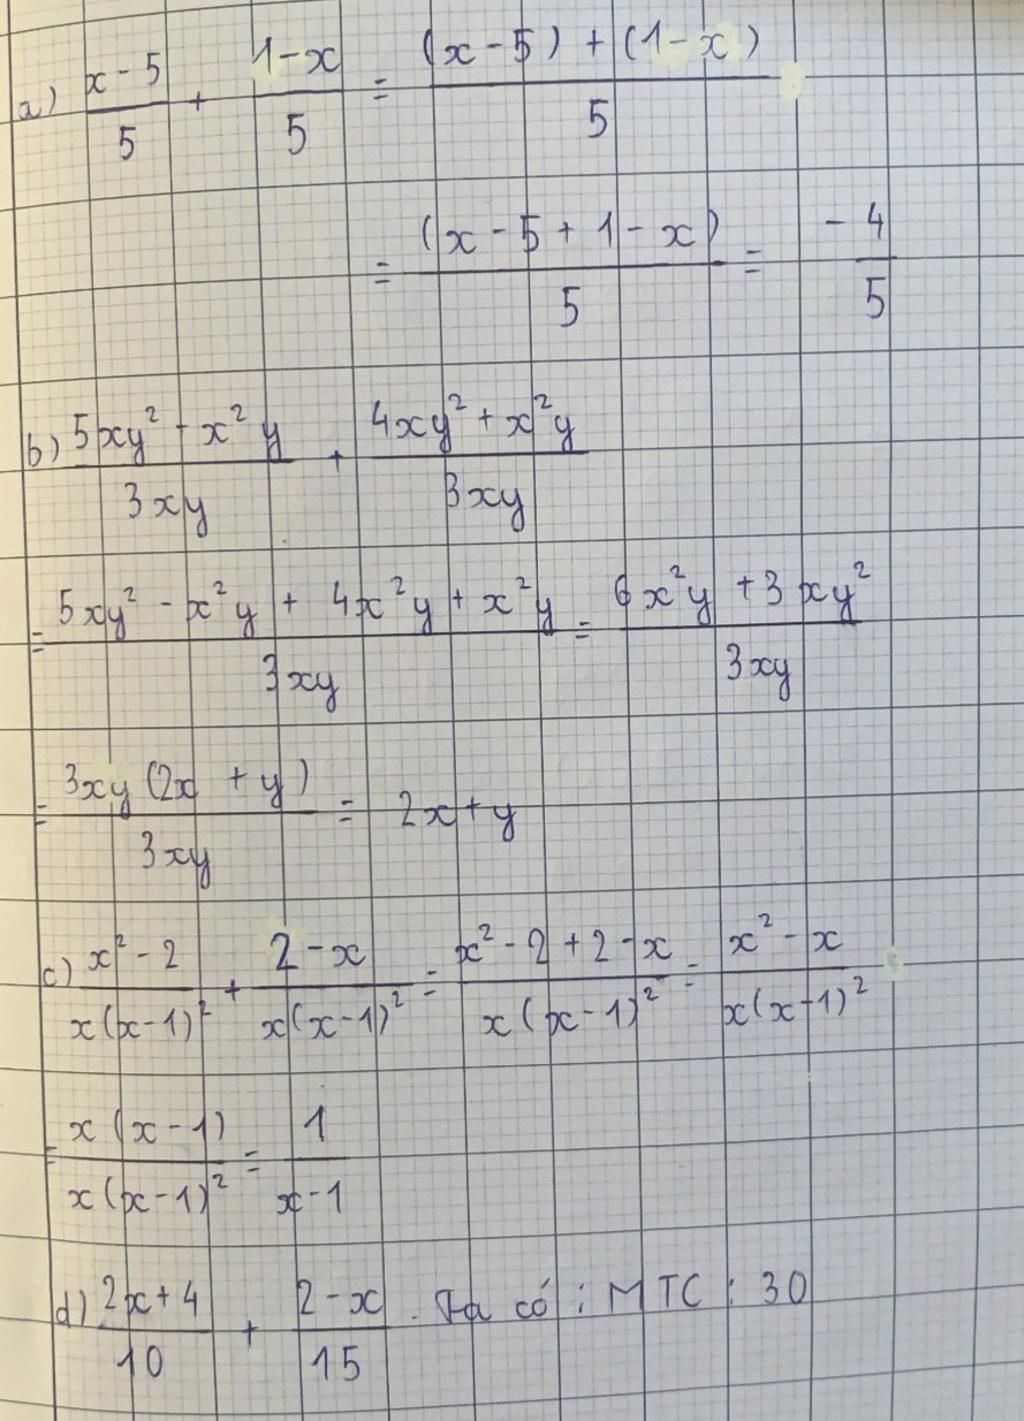 a) \frac{x-5}{5} + \frac{1-x}{5} = \frac{(x-5)+(1-x)}{5}
= \frac{(x-5+1-x)}{5} = \frac{-4}{5}
b) \frac{5xy^2 - x^2y}{3xy} + \frac{4xy^2 + x^2y}{3xy}
= \frac{5xy^2 - x^2y + 4x^2y + x^2y}{3xy} = \frac{6x^2y + 3xy^2}{3xy}
= \frac{3xy(2x+y)}{3xy} = 2x + y
c) \frac{x^2-2}{x(x-1)^2} + \frac{2-x}{x(x-1)^2} = \frac{x^2-2+2-x}{x(x-1)^2} = \frac{x^2-x}{x(x-1)^2}
= \frac{x(x-1)}{x(x-1)^2} = \frac{1}{x-1}
d) \frac{2x+4}{10} + \frac{2-x}{15} . Ta có : MTC : 30